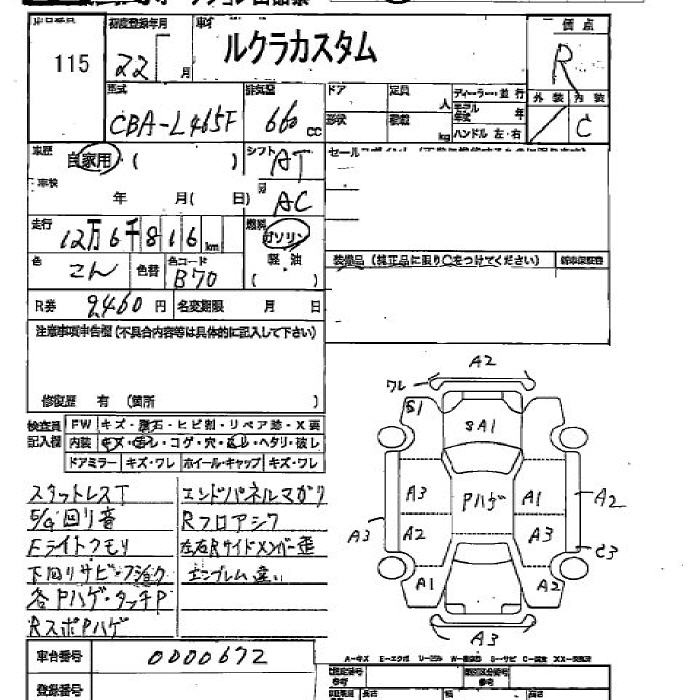 115
初度登録年月
22 月
ルクラカスタム
評価点
R
型式
CBA-L465F
排気量
660 cc
ドア
定員
人
ディーラー・並行
モデル年式 年
形状
積載
kg
ハンドル 左・右
外装 内装
C
車歴
自家用・( )
シフト
AT
車検
年 月( 日)
AC
走行
12万6千816km
燃料
ガソリン
軽油
( )
色
こん
色替
色コード
B70
装備品(純正品に限り○をつけてください)
新車保証書
R券 9460円
名変期限 月 日
注意事項申告欄(不具合内容等は具体的に記入して下さい)
修復歴 有(箇所 )
検査員記入欄
FW キズ・飛石・ヒビ割・リペア跡・X要
内装 キズ・汚レ・コゲ・穴・ヘタリ・破レ
ドアミラー キズ・ワレ ホイール・キャップ キズ・ワレ
スタットレスT
エンドパネルマガリ
回リ音
Rフロアシワ
Fライトクモリ
左右Rサイドメンバー歪
下回リサビ・フショク
エンブレム違い
各Pハゲ・タッチP
RスポPハゲ
車台番号
0000672
登録番号
A2
ワレ
S1
SA1
A3
Pハゲ
A1
A2
A3
A2
A3
A1
A2
A3
A-キズ E-エクボ